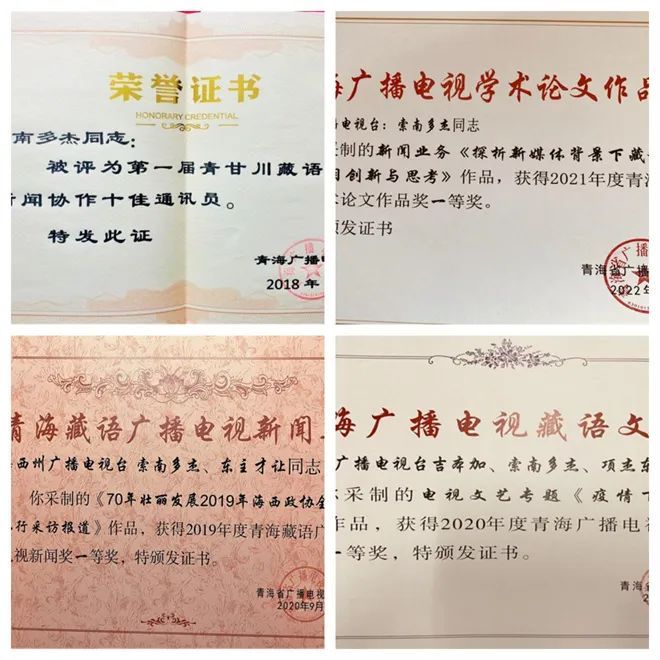 荣誉证书
HONORARY CREDENTIAL
南多杰同志：
被评为第一届青甘川藏语
新闻协作十佳通讯员。
特发此证
青海广播电
2018年
海广播电视学术论文作品
播电视台：索南多杰同志
采制的新闻业务《探析新媒体背景下藏语
创新与思考》作品，获得2021年度青海
术论文作品奖一等奖。
颁发证书
青海省广播电
2022年
青海藏语广播电视新闻
海西州广播电视台 索南多杰、东主才让同志
你采制的《70年壮丽发展2019年海西政协全
行采访报道》作品，获得2019年度青海藏语广
视新闻奖一等奖，特颁发证书。
青海省广播电视
2020年9月
海广播电视藏语文
广播电视台吉本加、索南多杰、项杰东
采制的电视文艺专题《疫情下
作品，获得2020年度青海广播电视
等奖，特颁发证书。
青海省广播